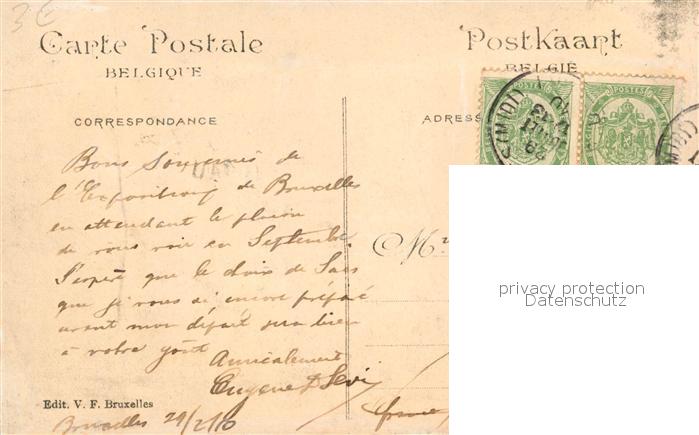 3€
Carte Postale
Postkaart
BELGIQUE
BELGIË
POSTES
POSTES
CORRESPONDANCE
ADRESS
Bons souvenirs de
l'Exposition de Bruxelles
en attendant le plaisir
de vous voir en Septembre
J'espère que le choix de
que je vous ai encore préparé
avant mon départ sera bien
à votre goût
Amicalement
Eugene
Mr
privacy protection
Datenschutz
Edit. V. F. Bruxelles
Bruxelles